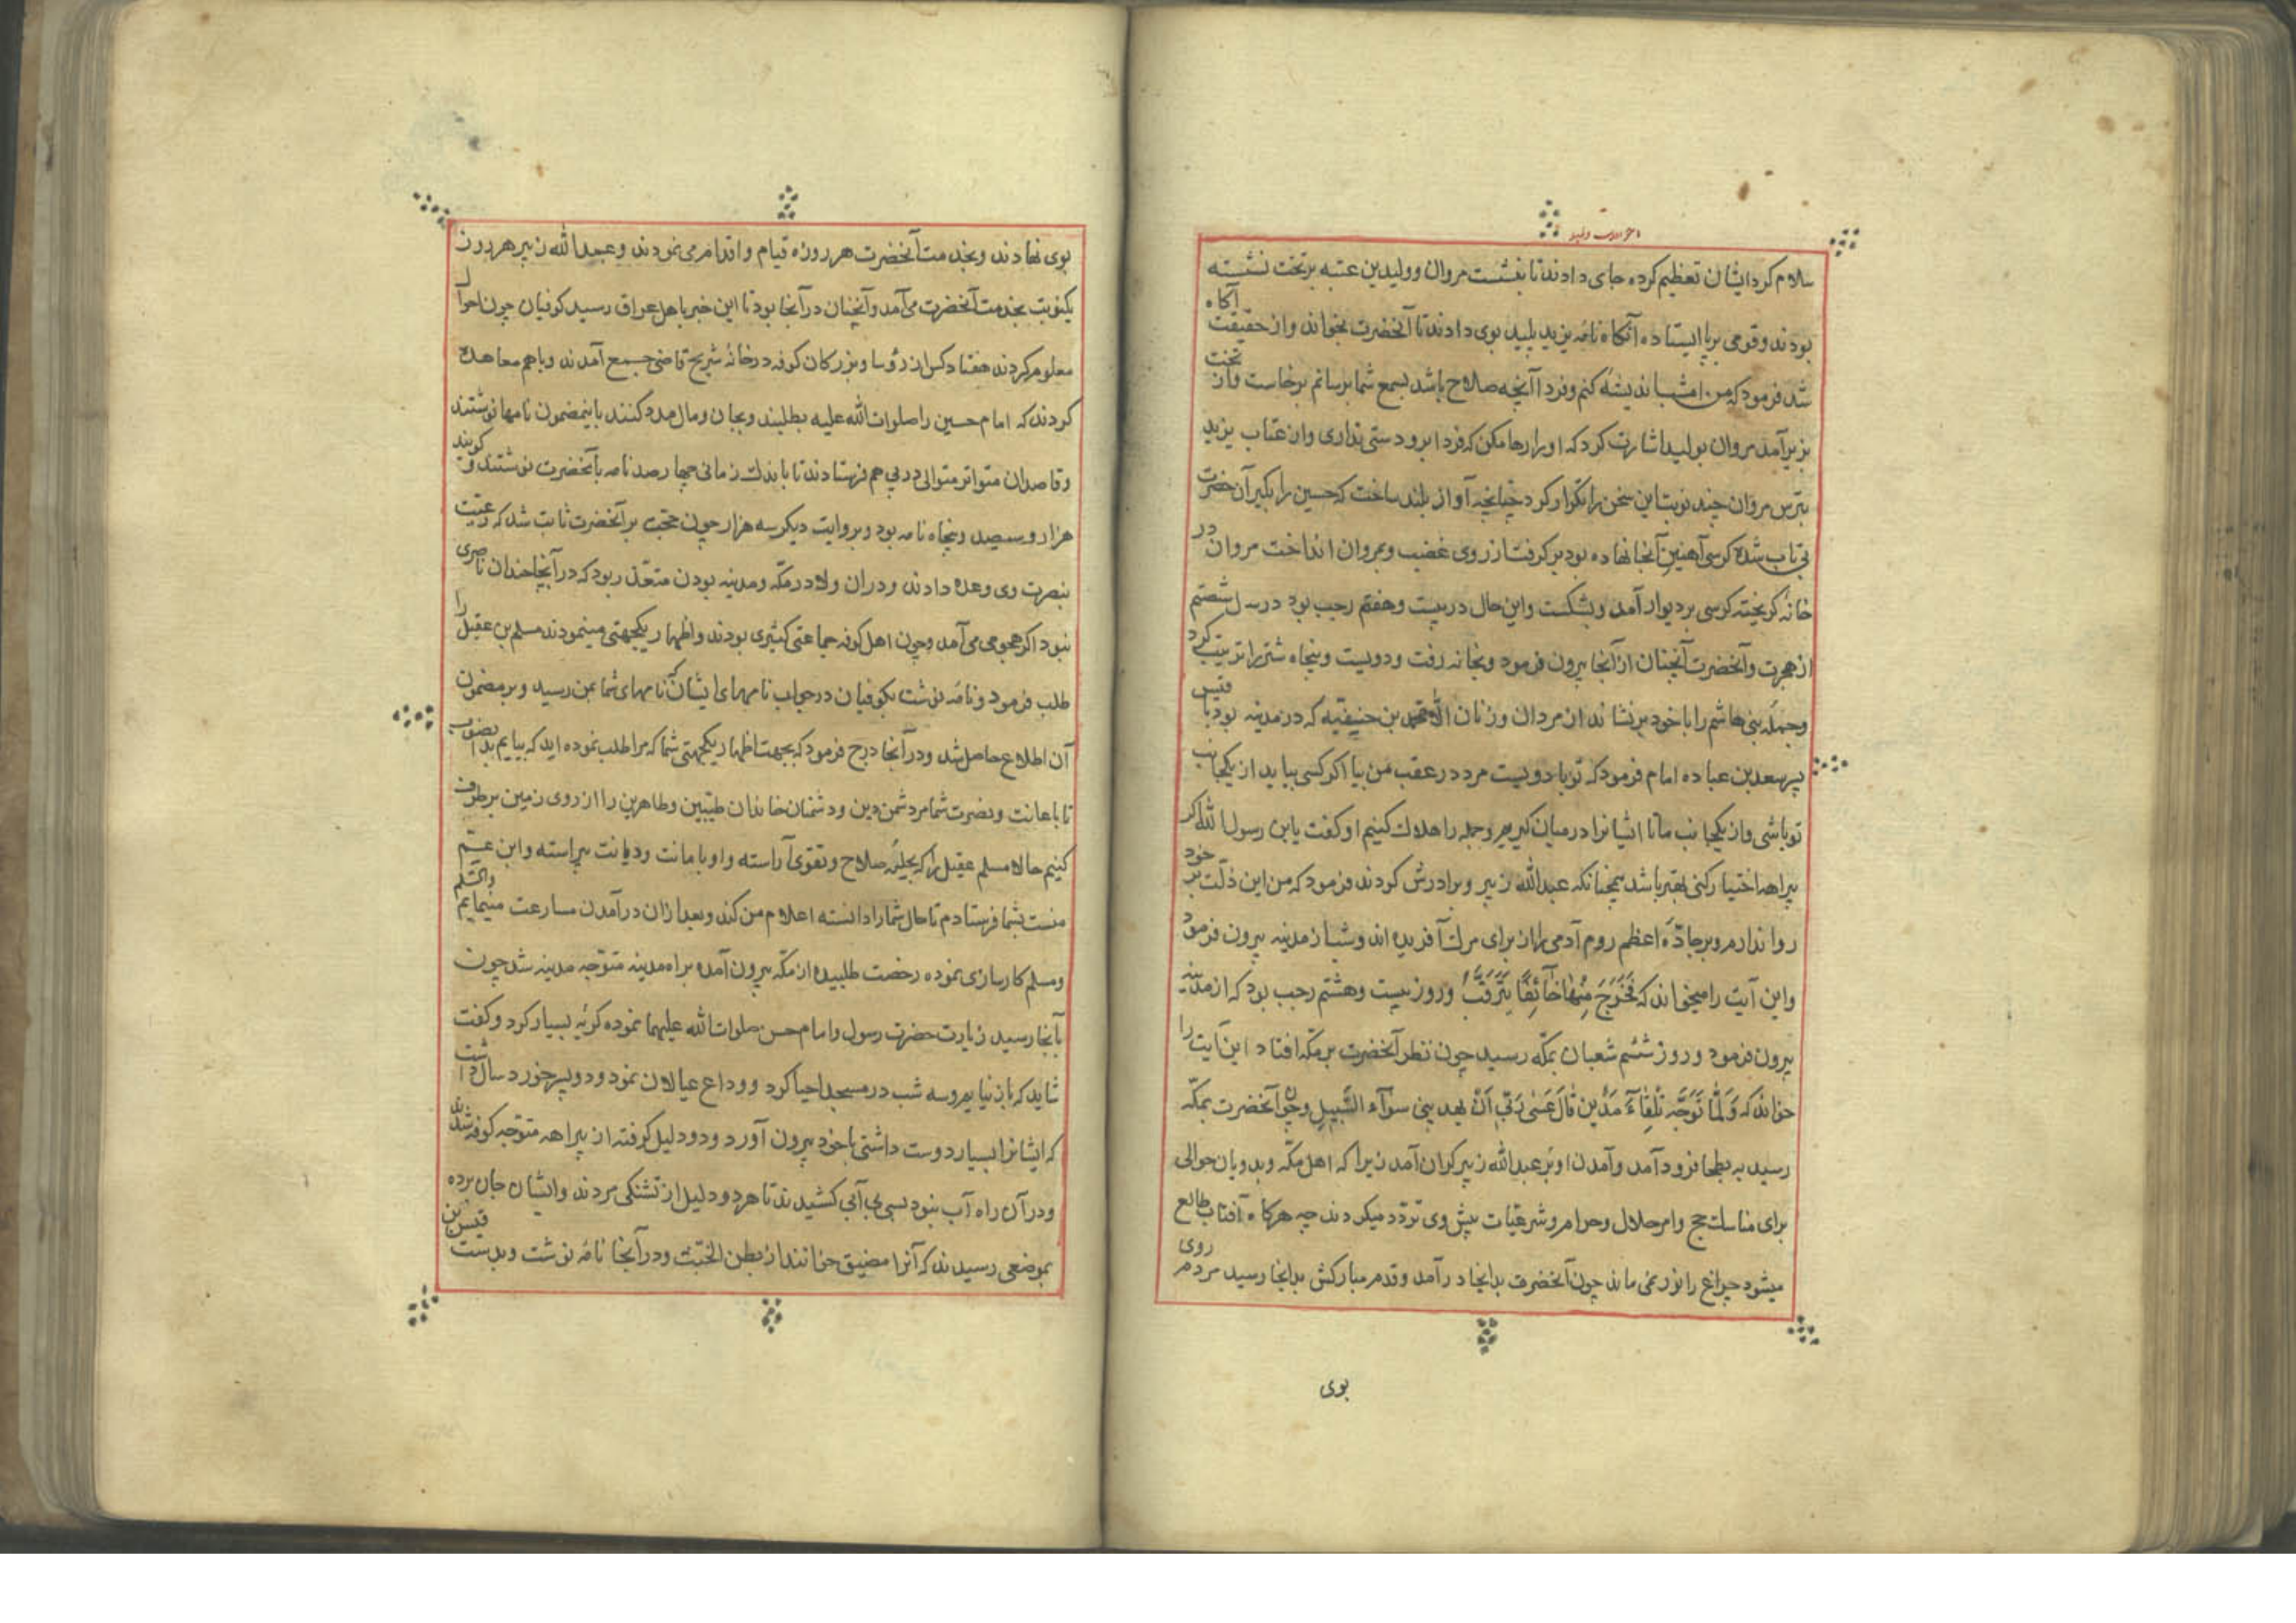 سلام کرد ایشان تعظیم کرده جای دادند تا بنشست مروان و ولید بن عتبه بر تخت نشسته
بودند و قومی بر پا ایستاده آنکاه نامه یزید پلید بوی دادند تا آنحضرت بخواند و از حقیقت آکاه
شد فرمود که من امشب اندیشه کنم و فردا آنچه صلاح باشد بسمع شما برسانم برخاست و از تخت
بزیر آمد مروان بولید اشارت کرد که او را رها مکن که فردا برو دستی نداری و از عتاب یزید
بترس مروان چند نوبت این سخن را تکرار کرد چنانچه آواز بلند ساخت که حسین را بکیر آن حضرت
بی تاب شده کرسی آهنین آنجا نهاده بود بر کرفت از روی غضب و بمروان انداخت مروان در
خانه کریخته کرسی بر دیوار آمد و بشکست و این حال در بیست و هفتم رجب بود در سال شصتم
از هجرت و آنحضرت آنچنان از آنجا بیرون فرمود و بخانه رفت و دویست و پنجاه شتر را ترتیب کرد
و جمله بنی هاشم را با خود برنشاند از مردان و زنان الا محمد بن حنیفیه که در مدینه بود با قیس
پسر سعد بن عباده امام فرمود که تو با دویست مرد در عقب من بیا اکر کسی بیاید از یکجانب
تو باشی و از یکجانب ما تا ایشانرا در میان کیریم و جمله را هلاک کنیم او کفت یابن رسول الله اکر
بیراهه اختیار کنی بهتر باشد همچنانکه عبدالله زبیر و برادرش کردند فرمود که من این ذلت بر خود
روا ندارم و بر جادّه اعظم روم آدمی را از برای مرک آفریده اند و شب از مدینه بیرون فرمود
و این آیت را میخواند که فَخَرَجَ مِنْهَا خَائِفًا يَتَرَقَّبُ و روز بیست و هشتم رجب بود که از مدینه
بیرون فرمود و روز ششم شعبان بمکّه رسید چون نظر آنحضرت بر مکّه افتاد این آیت را
خواند که وَلَمَّا تَوَجَّهَ تِلْقَآءَ مَدْیَنَ قَالَ عَسٰی رَبّی اَنْ یهدینی سوآء السَّبیل و چون آنحضرت بمکّه
رسید به بطحا فرود آمد و آمدن او بر عبدالله زبیر کران آمد زیرا که اهل مکّه و بدویان حوالی
برای مناسک حج و امر حلال و حرام و شرعیات پیش وی تردّد میکردند چه هرکاه آفتاب طالع
میشود چراغ را نور نمی ماند چون آنحضرت بدانجا در آمد و قدم مبارکش بدانجا رسید مردم روی
بوی
بوی نهادند و بخدمت آنحضرت هر روزه قیام و اقدام می نمودند و عبدالله زبیر هر روز
یکنوبت بخدمت آنحضرت می آمد و آنچنان در آنجا بود تا این خبر باهل عراق رسید کوفیان چون احوال
معلوم کردند هفتاد کس از رؤسا و بزرکان کوفه در خانه شریح قاضی جمع آمدند و باهم معاهده
کردند که امام حسین را صلوات الله علیه بطلبند و بجان و مال مدد کنند باینمضمون نامها نوشتند
و قاصدان متواتر متوالی در پی هم فرستادند تا باندک زمانی چهارصد نامه بآنحضرت نوشتند و کویند
هزار و سیصد و پنجاه نامه بود و بروایت دیکر سه هزار چون حجت بر آنحضرت ثابت شد که رعیت
بنصرت وی وعده دادند و در آن ولا در مکّه و مدینه بودن متعذر بود که در آنجا چندان ناصری
نبود اکر هجومی می آمد و چون اهل کوفه جماعتی کثیری بودند و اظهار یکجهتی مینمودند مسلم بن عقیل را
طلب فرمود و نامه نوشت بکوفیان در جواب نامهای ایشان که نامهای شما بمن رسید و بر مضمون
آن اطلاع حاصل شد و در آنجا درج فرمود که بجهت اظهار یکجهتی شما که مرا طلب نموده اید که بیایم بدانصوب
تا باعانت و نصرت شما مر دشمن دین و دشمنان خاندان طیّبین و طاهرین را از روی زمین برطرف
کنیم حالا مسلم عقیل را که بحلیه صلاح و تقوی آراسته و او بامانت و دیانت پیراسته و ابن عمّ
منست بشما فرستادم تا حال شما را دانسته اعلام من کند و بعد از ان در آمدن مسارعت مینمایم والسّلم
و مسلم کارسازی نموده رخصت طلبیده از مکّه بیرون آمده براه مدینه متوجّه مدینه شد چون
بآنجا رسید زیارت حضرت رسول و امام حسن صلوات الله علیهما نموده کریه بسیار کرد و کفت
شاید که باز نیایم و سه شب در مسجد احیا کرد و وداع عیالان نمود و دو پسر خورد سال داشت
که ایشانرا بسیار دوست داشتی با خود بیرون آورد و دو دلیل کرفته از بیراهه متوجّه کوفه شدند
و در آن راه آب نبود بسی بی آبی کشیدند تا هر دو دلیل از تشنکی مردند و ایشان جان برده
بموضعی رسیدند که آنرا مضیق خوانند از بطن الخبت و در آنجا نامه نوشت و بدست قیس بن